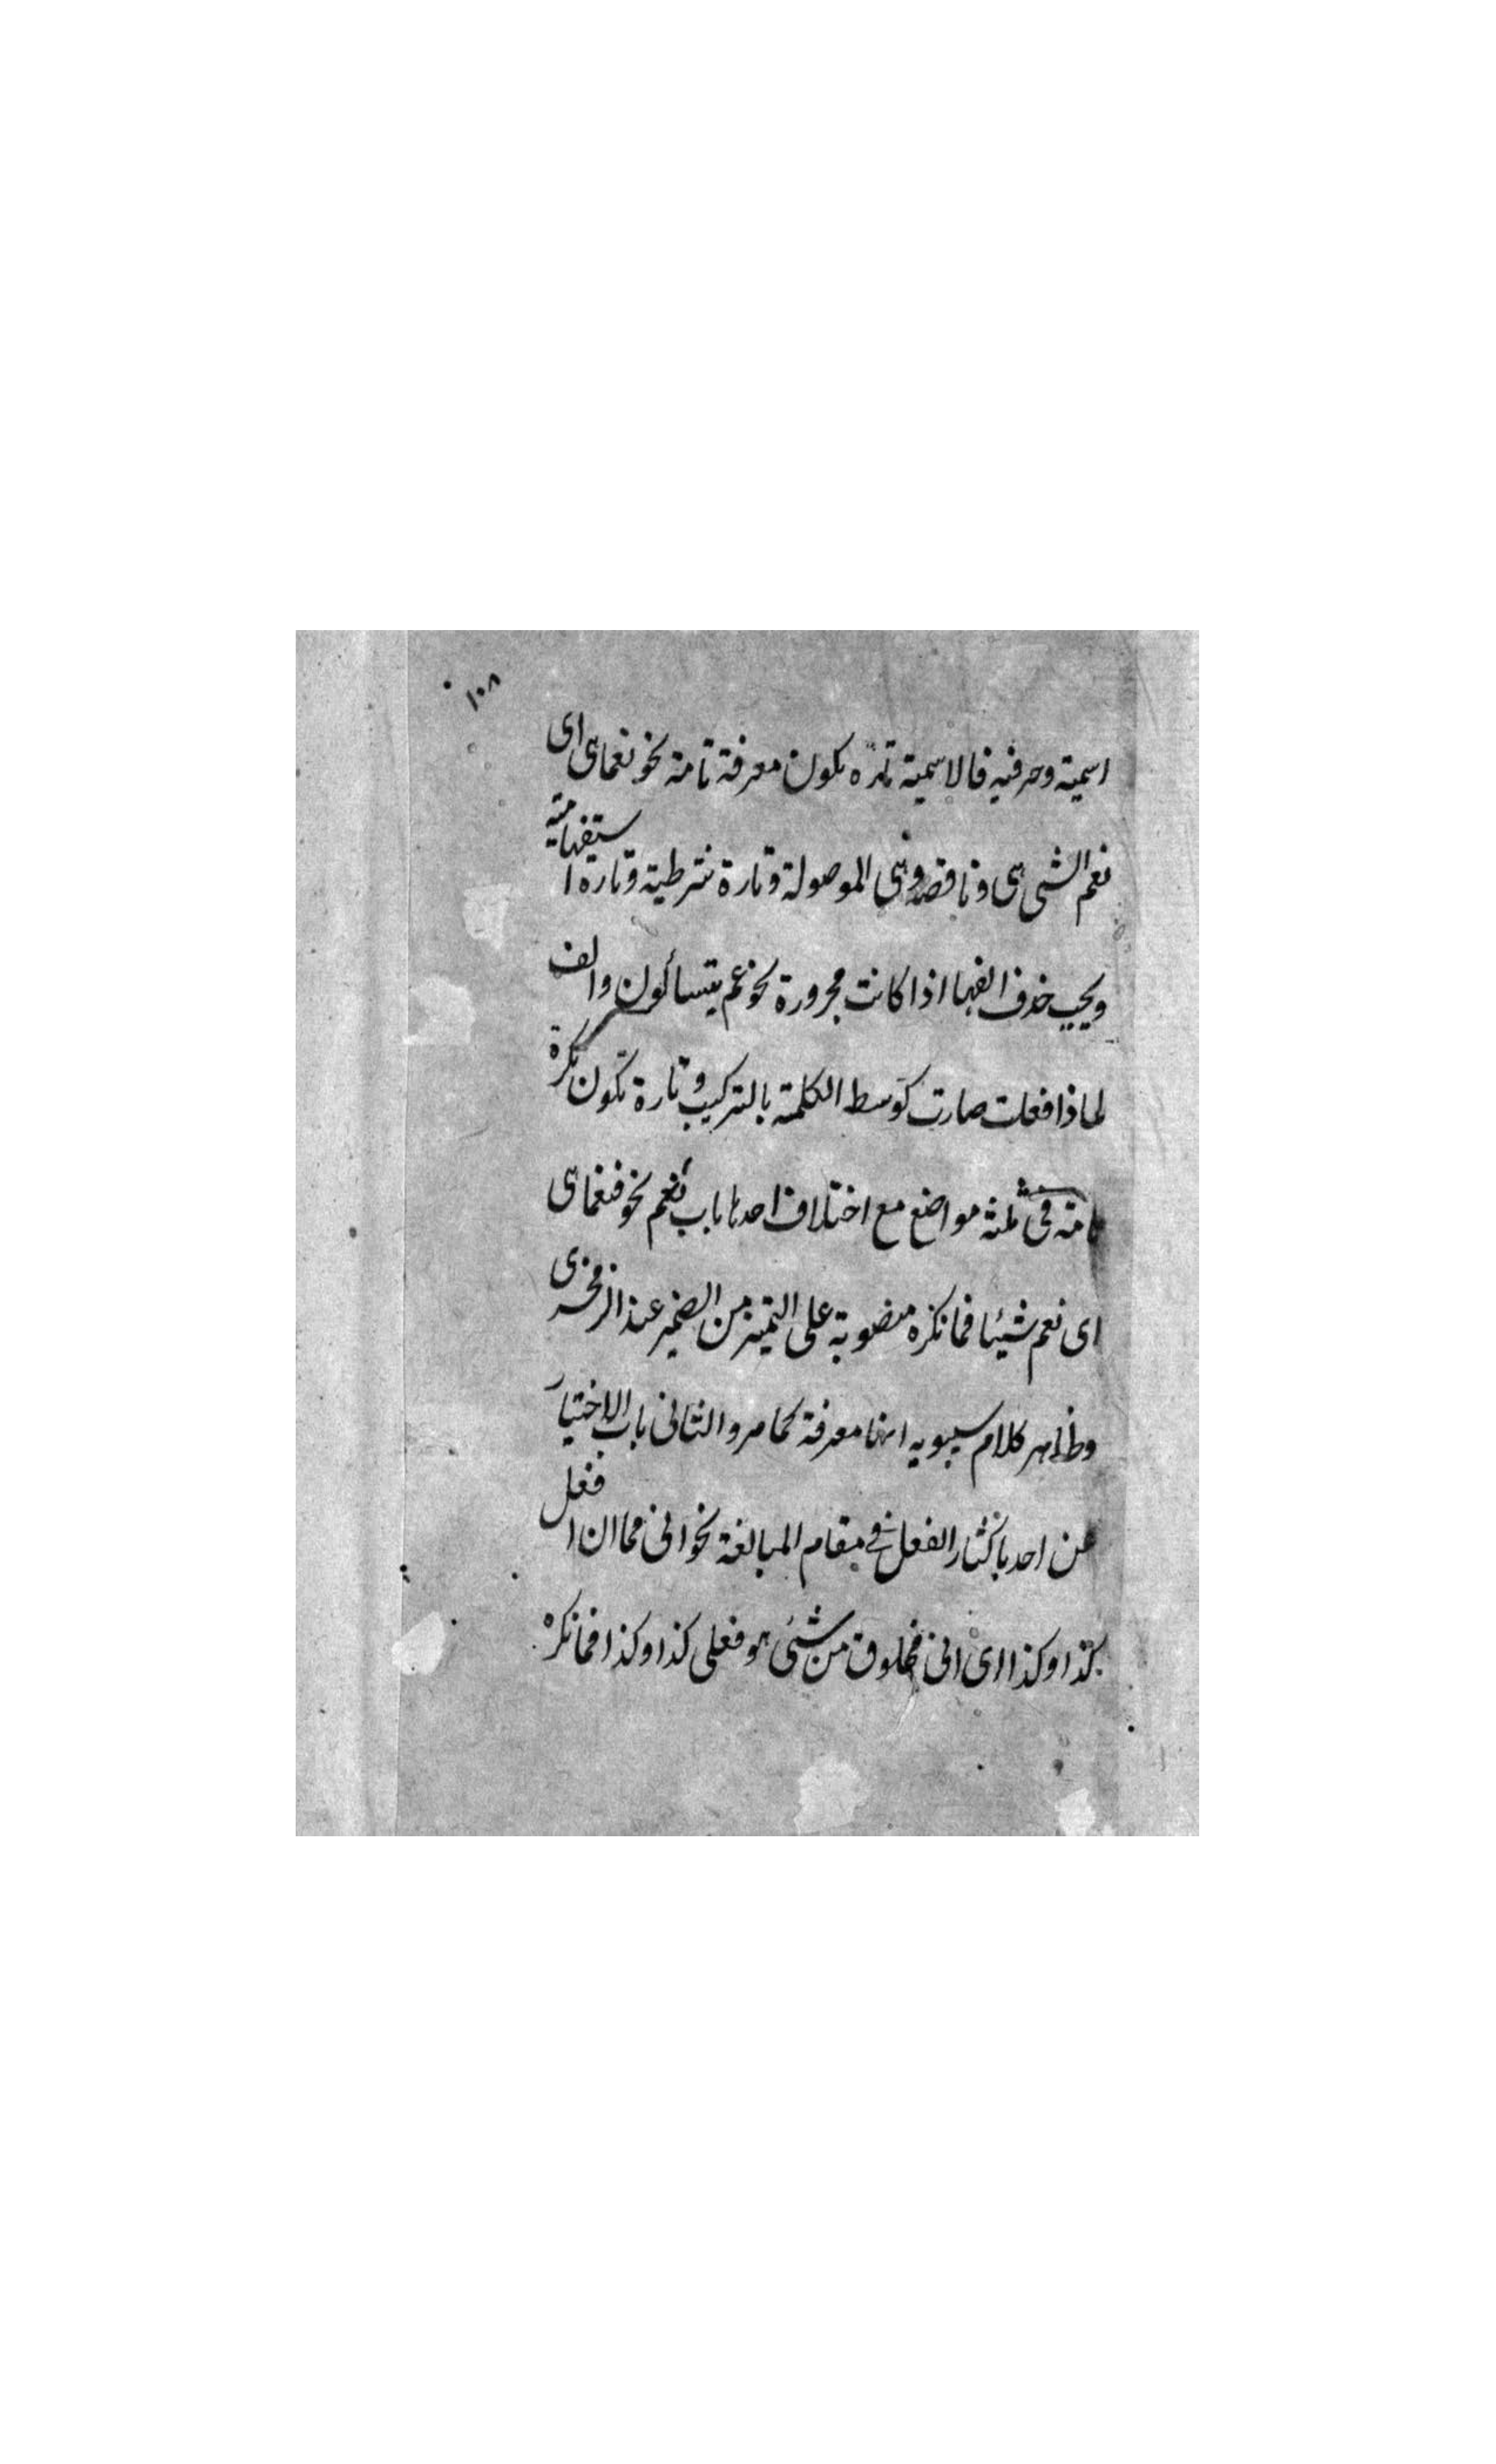 ١٠٨
اسمية وحرفيه فالاسمية تارة يكون معرفة تامة نحو نعماهى اى
نعم الشى هى وناقصة وهى الموصولة وتارة شرطية وتارة استفهامية
ويجب حذف الفها اذا كانت مجرورة نحو عم يتسألون والف
لماذا فعلت صارت كوسط الكلمة بالتركيب وتارة تكون نكرة
تامة فى ثلثة مواضع مع اختلاف احدها باب نعم نحو فنعماهى
اى نعم شيئا فما نكره منصوبة على التميز من الضمير عند الزمخشرى
وظاهر كلام سيبويه انها معرفة كما مر والثانى باب الاختيار
عن احد باكثار الفعل فى مقام المبالغة نحو انى مما ان افعل
كذا وكذا اى انى مخلوق من شئى هو فعلى كذا وكذا فما نكره